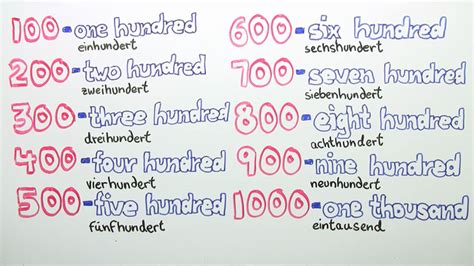 100-one hundred
einhundert
200-two hundred
zweihundert
300-three hundred
dreihundert
400-four hundred
vierhundert
500-five hundred
fünfhundert
600-six hundred
sechshundert
700-seven hundred
siebenhundert
800-eight hundred
achthundert
900-nine hundred
neunhundert
1000-one thousand
eintausend